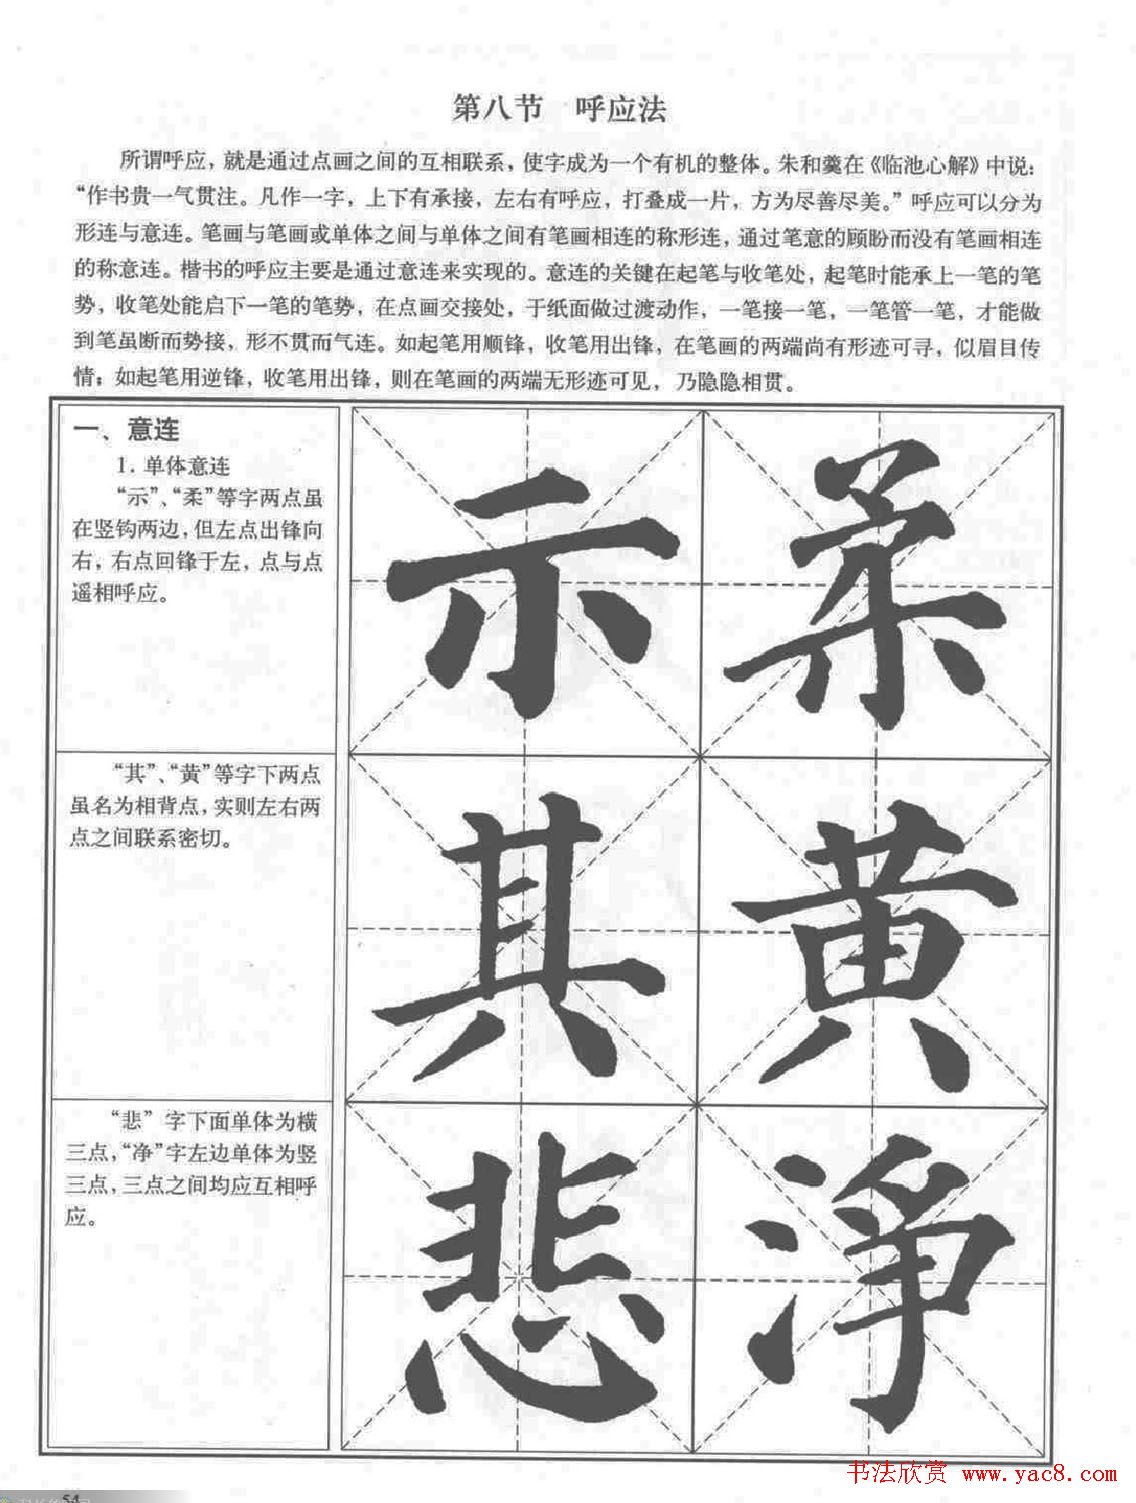 第八节 呼应法
所谓呼应，就是通过点画之间的互相联系，使字成为一个有机的整体。朱和羹在《临池心解》中说：
“作书贵一气贯注。凡作一字，上下有承接，左右有呼应，打叠成一片，方为尽善尽美。”呼应可以分为
形连与意连。笔画与笔画或单体之间与单体之间有笔画相连的称形连，通过笔意的顾盼而没有笔画相连
的称意连。楷书的呼应主要是通过意连来实现的。意连的关键在起笔与收笔处，起笔时能承上一笔的笔
势，收笔处能启下一笔的笔势，在点画交接处，于纸面做过渡动作，一笔接一笔，一笔管一笔，才能做
到笔虽断而势接，形不贯而气连。如起笔用顺锋，收笔用出锋，在笔画的两端尚有形迹可寻，似眉目传
情；如起笔用逆锋，收笔用出锋，则在笔画的两端无形迹可见，乃隐隐相贯。
一、意连
1. 单体意连
“示”、“柔”等字两点虽
在竖钩两边，但左点出锋向
右，右点回锋于左，点与点
遥相呼应。
示 柔
“其”、“黄”等字下两点
虽名为相背点，实则左右两
点之间联系密切。
其 黄
“悲”字下面单体为横
三点，“净”字左边单体为竖
三点，三点之间均应互相呼
应。
悲 淨
书法欣赏 www.yac8.com
54